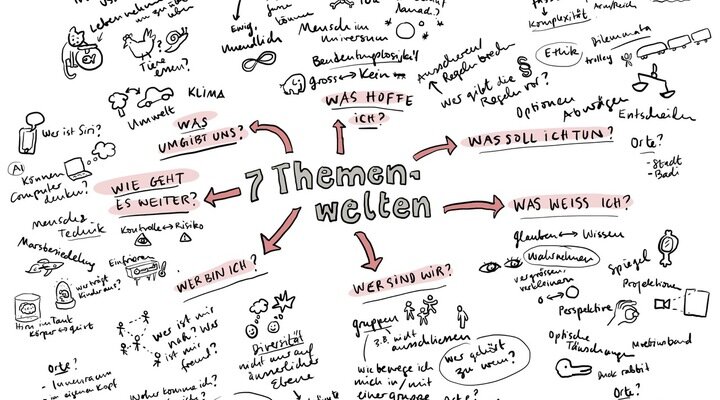 7 Themen-
welten
WAS
UMGIBT UNS?
WAS HOFFE
ICH?
WAS SOLL ICH TUN?
WAS WEISS ICH?
WER SIND WIR?
WER BIN ICH?
WIE GEHT
ES WEITER?
Tiere
essen?
KLIMA
Umwelt
Ewig,
Unendlich
Mensch im
Universum
gross ↔ Klein
Ausscheren/
Regeln brechen
wer gibt die
Regeln vor?
Komplexität
Ethik
Dilemmata
trolley
Optionen
Abwägen
Entscheiden
Orte?
- Stadt
- Badi
glauben ↔ Wissen
Wahrnehmen
vergrössern
verkleinern
Spiegel
Projektionen
Perspektive
Optische
Täuschungen
Duck rabbit
Orte?
gruppen
z.B. nicht
ausschliessen
wer gehört
zu wem?
wie bewege ich
mich in/mit
einer gruppe
Orte?
Diversität
nicht nur auf
äusserlicher
Ebene
Wer ist mir
nah? Was
ist mir
fremd?
Woher komme ich?
Orte?
- Innenraum
- im eigenen Kopf
Wer ist Siri?
AI
Können
Computer
denken?
Mensch &
Technik
Kontrolle ↔ Risiko
Marsbesiedelung
Einfrieren
wer trägt
Kinder aus?
Hirn im Tank
Körper ↔ Geist